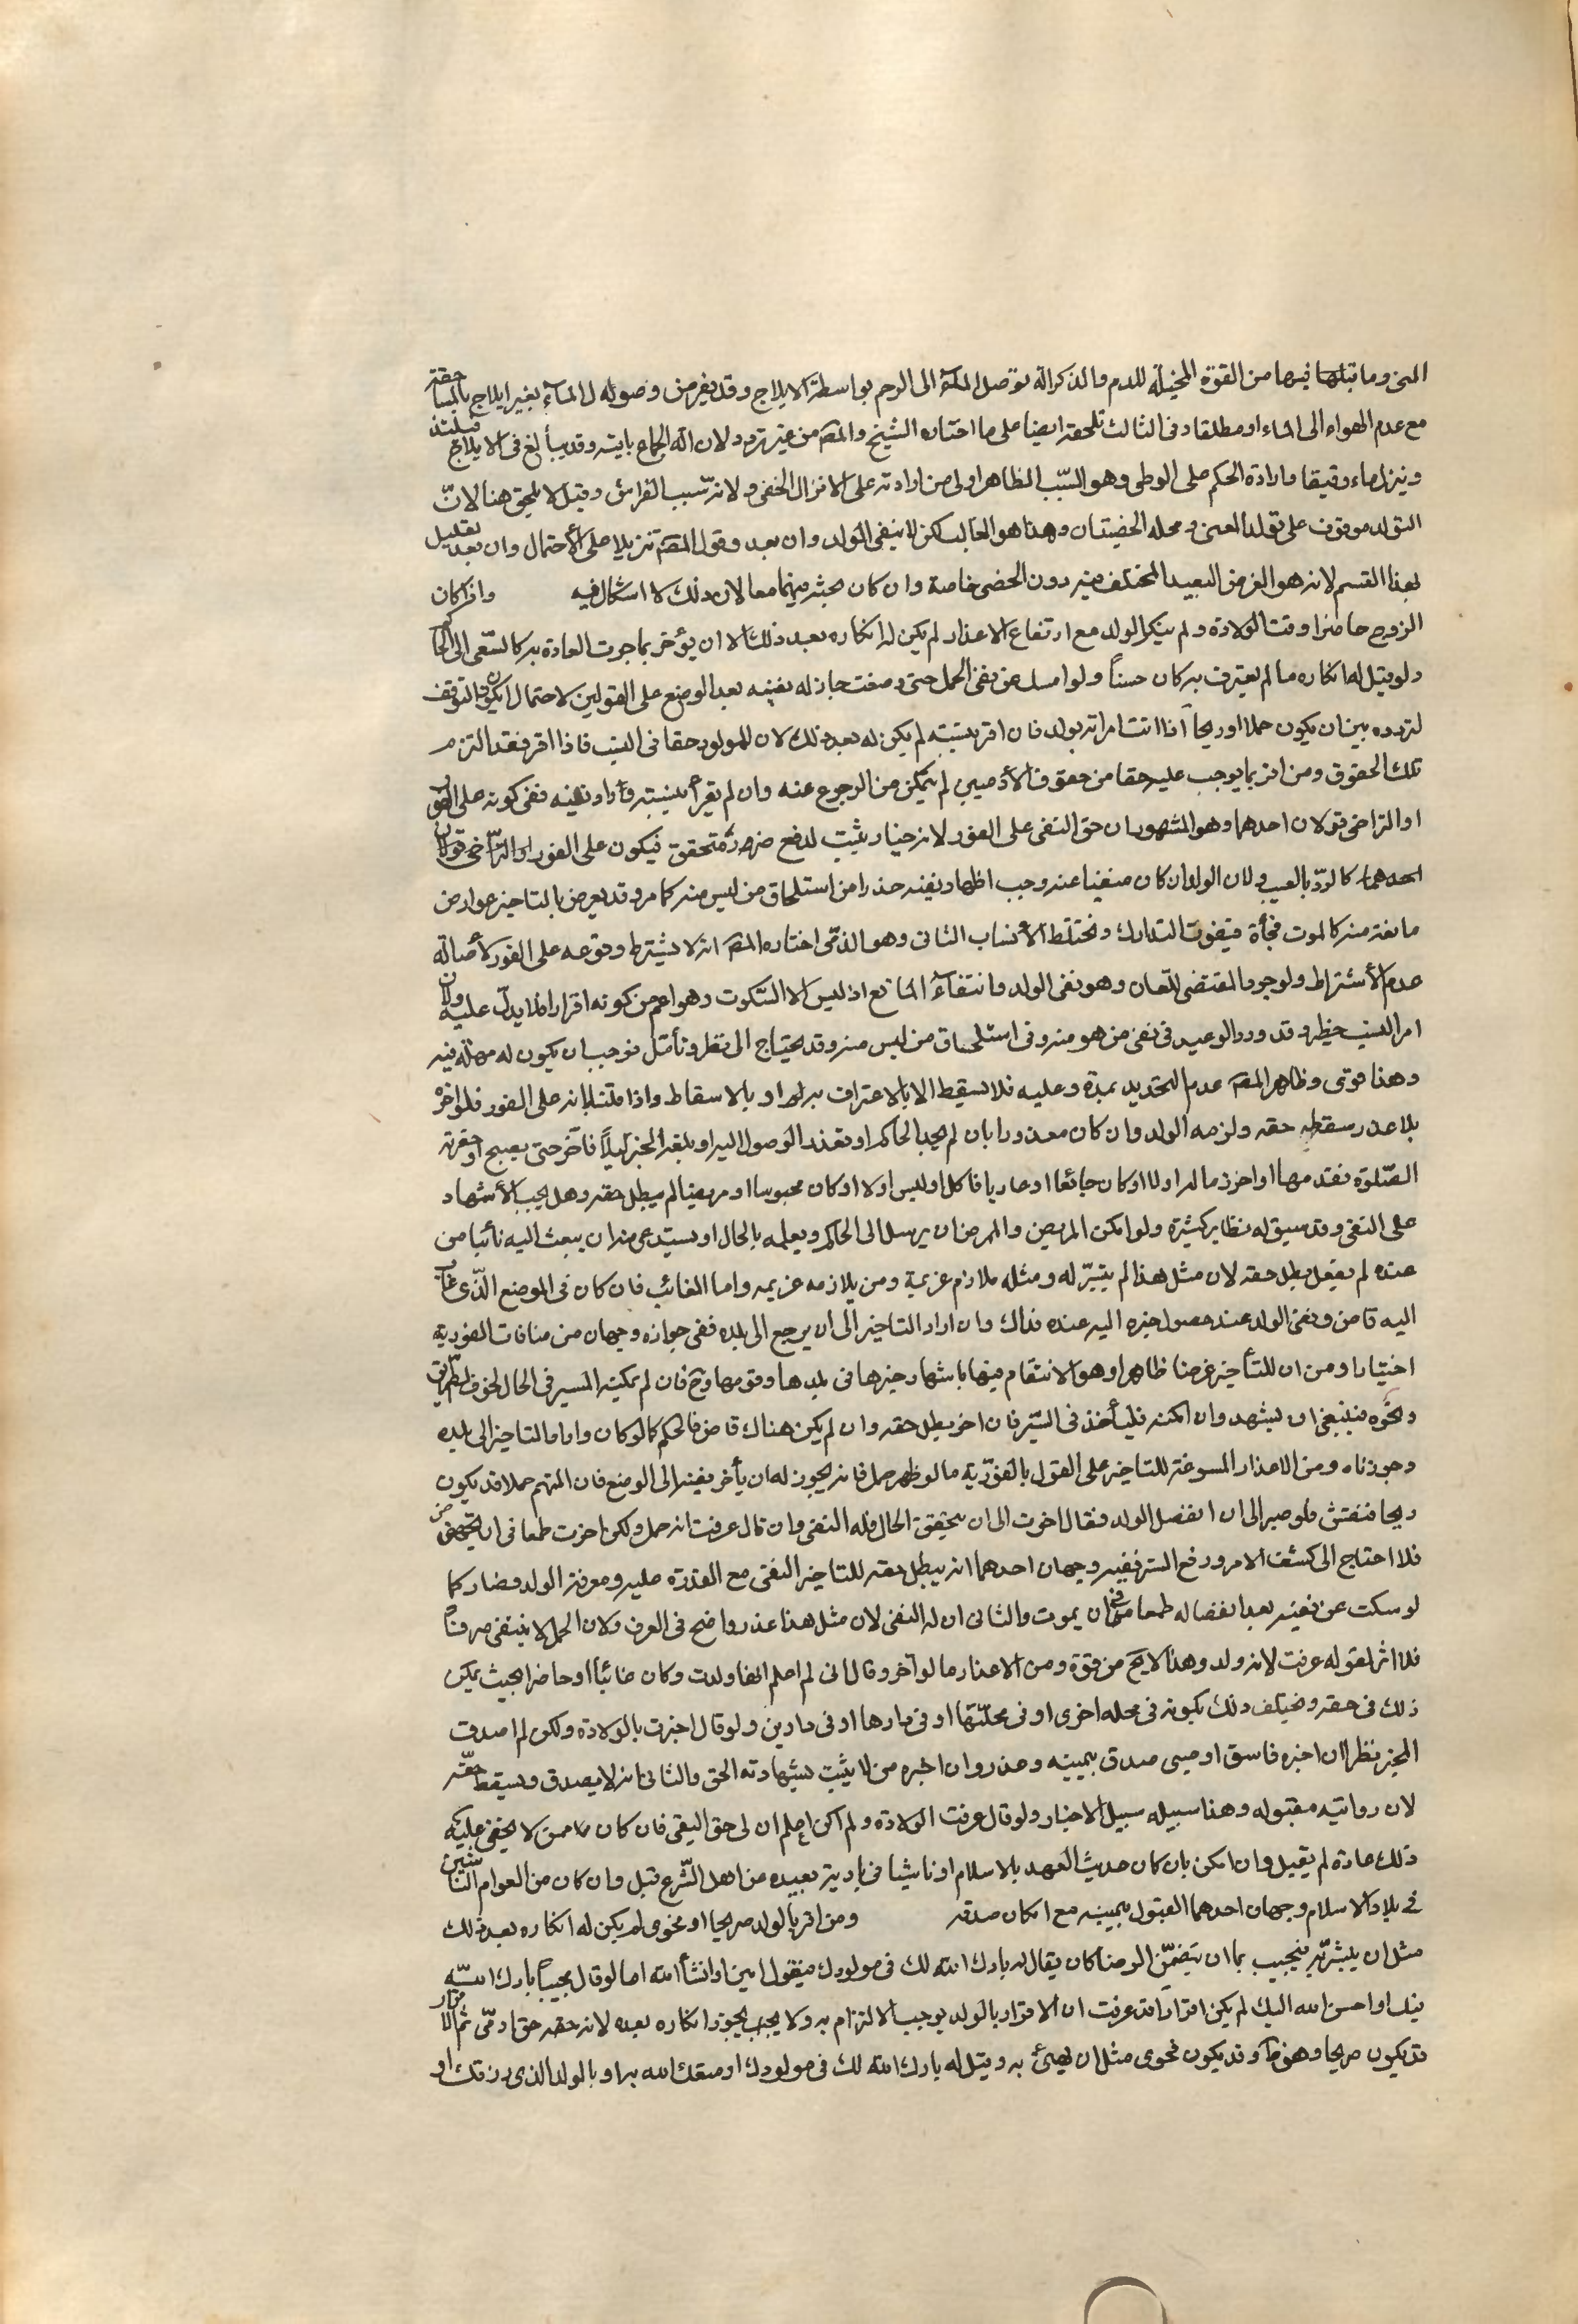 المنى وما قبلها فيها من القوة المحيلة للدم والذكر آلة توصل الماء الى الرحم بواسطة الايلاج وقد يفرض وصوله الماء بغير ايلاج بالمساحقة
مع عدم الهواء الى الماء او مطلقا وفى الثالث تلحقه ايضا على ما اختاره الشيخ والمصَ من غير تردد لان آلة الجماع باقية وقد يبالغ فى الايلاج فيلتذ
وينزل ماء رقيقا وارادة الحكم على الوطى وهو السّبب الظاهر اولى من ارادته على الانزال الخفى ولانه سبب الفراش وقيل لا يلحق هنا لانّ
التولد موقوف على تولد المنى ومحله الخصيتان وهذا هو الغالب لكن لا ينفى الولد وان بعد وقول المصَ تنزيلا على الأحتمال وان بعد تعليل
لهذا القسم لانه هو الفرض البعيد المختلف فيه دون الخصى خاصة وان كان بحثه فيهما معا لان ذلك لا اشكال فيه واذا كان
الزوج حاضرا وقت الولادة ولم ينكر الولد مع ارتفاع الاعذار لم يكن له انكاره بعد ذلك الا ان يؤخر بما جرت العادة به كالسّعى الى الحاكم
ولو قيل له انكاره ما لم يعترف به كان حسناً ولو امسك عن نفى الحمل حتى وضعت جاز له نفيه بعد الوضع على القولين لاحتمال ان يكون التوقف
لتردده بين ان يكون حملا او ريحاً اذا اتت امراته بولد فان اقر بنسبته لم يكن له بعد ذلك لان للمولود حقا فى النسب فاذا اقر فقد التزم
تلك الحقوق ومن اقر بما يوجب عليه حقا من حقوق الأدميين لم يتمكن من الرجوع عنه وان لم يقر بنسبته واراد نفيه ففى كونه على الفور
او التراخى قولان احدهما وهو المشهور ان حق النفى على الفور لانه خيار يثبت لدفع ضرر متحقق فيكون على الفور او التراخى قولان
احدهما كالردّ بالعيب ولان الولد ان كان منفيا عنه وجب اظهار نفيه حذرا من استلحاق من ليس منه كما مر وقد يعرض بالتاخير عوارض
مانعة منه كالموت فجأة فيفوت التدارك وتختلط الأنساب الثانى وهو الذى اختاره المصَ انه لا يشترط وقوعه على الفور لأصالة
عدم الأشتراط ولوجود المقتضى للّعان وهو نفى الولد وانتفاء المانع اذ ليس الا السّكوت وهو اعم من كونه اقرارا فلا يدلّ عليه ولان
امر النسب خطير وقد ورد الوعيد فى نفى من هو منه وفى استلحاق من ليس منه وقد يحتاج الى نظر وتأمّل فوجب ان يكون له مهلة فيه
وهذا قوى وظاهر المصَ عدم التحديد بمدة وعليه فلا يسقط الا بالاعتراف به او بالاسقاط واذا قلنا بانه على الفور فلو اخره
بلا عذر سقط حقه ولزمه الولد وان كان معذورا بان لم يجد الحاكم او تعذر الوصول اليه او بلغه الخبر ليلاً فأخر حتى يصبح او حضرته
الصّلوة فقدمها او احرز ماله اولا او كان جائعا او عاريا فاكل او لبس اولا او كان محبوسا او مريضا لم يبطل حقه وهل يجب الأشهاد
على النفى وقد سبق له نظاير كثيرة ولو امكن المريض والممرض ان يرسل الى الحاكم ويعلمه بالحال او يستدعى منه ان يبعث اليه نائبا من
عنده لم يفعل بطل حقه لان مثل هذا لم يتيسّر له ومثله ملازم غريمه ومن يلازمه غريمه واما الغائب فان كان فى الموضع الّذى غاب
اليه قاض ونفى الولد عند حصول خبره اليه عنده فذاك وان اراد التاخير الى ان يرجع الى بلده ففى جوازه وجهان من منافات الفورية
اختيارا ومن ان للتأخير غرضا ظاهرا وهو الانتقام فيها باشهار خبرها فى بلدها وقومها وح فان لم يمكنه المسير فى الحال لخوف الطريق
ونحوه فينبغى ان يشهد وان امكنه فليأخذ فى السّير فان اخر بطل حقه وان لم يكن هناك قاض فالحكم كما لو كان واراد التاخير الى بلده
وجوزناه ومن الاعذار المسوغة للتاخير على القول بالفوريّة ما لو ظهر حمل فانه يجوز له ان يأخر نفيه الى الوضع فان المتهم حملا قد يكون
ريحا فنفتش فلو صبر الى ان انفصل الولد فقال اخرت الى ان يتحقق الحال فله النفى وان قال عرفت انه حمل ولكن اخرت طمعا فى ان تجهض
فلا احتاج الى كشف الامر ورفع الستر ففيه وجهان احدهما انه يبطل حقه للتاخير النفى مع القدرة عليه ومعرفة الولد فصار كما
لو سكت عن نفيه بعد انفصاله طمعا فى ان يموت والثانى ان له النفى لان مثل هذا عذر واضح فى العرف ولان الحمل لا ينتفى صرفا
فلا اثر لقوله عرفت لانه ولد وهذا لا يخ من قوة ومن الاعذار ما لو اخر وقال انى لم اعلم انها ولدت وكان غائباً او حاضرا بحيث يمكن
ذلك فى حقه ويختلف ذلك بكونه فى محله اخرى او فى محلتها او فى دارها او فى دارين ولو قال اخبرت بالولادة ولكن لم اصدق
المخبر نظر ان اخبره فاسق او صبى صدق بيمينه وعذر وان اخبره من لا يثبت بشهادته الحق والثانى انه لا يصدق ويسقط حقّه
لان روايته مقبوله وهذا سبيله سبيل الاخبار ولو قال عرفت الولادة ولم اكن اعلم ان لى حق النفى فان كان ممن لا يخفى عليه
ذلك عادة لم يقبل وان امكن بان كان حديث العهد بالاسلام او ناشيا فى بادية بعيده من اهل الشّرع قبل وان كان من العوام الناشئين
فى بلاد الاسلام وجهان احدهما القبول بيمينه مع امكان صدقه ومن اقر بالولد صريحا او فحوى لم يكن له انكاره بعد ذلك
مثل ان يبشّر به فيجيب بما ان يتضمّن الرضا كان يقال له بارك الله لك فى مولودك فيقول امين او انشأ الله اما لو قال مجيباً بارك الله
فيك او احسن الله اليك لم يكن اقراراً قد عرفت ان الاقرار بالولد يوجب الالتزام به ولا يجوز انكاره بعده لانه حقه حق ادمّى ثم الاقرار
قد يكون صريحا وهو ظَ وقد يكون فحوى مثل ان يهنئ به وقيل له بارك الله لك فى مولودك او متعك الله به او بالولد الذى رزقك او